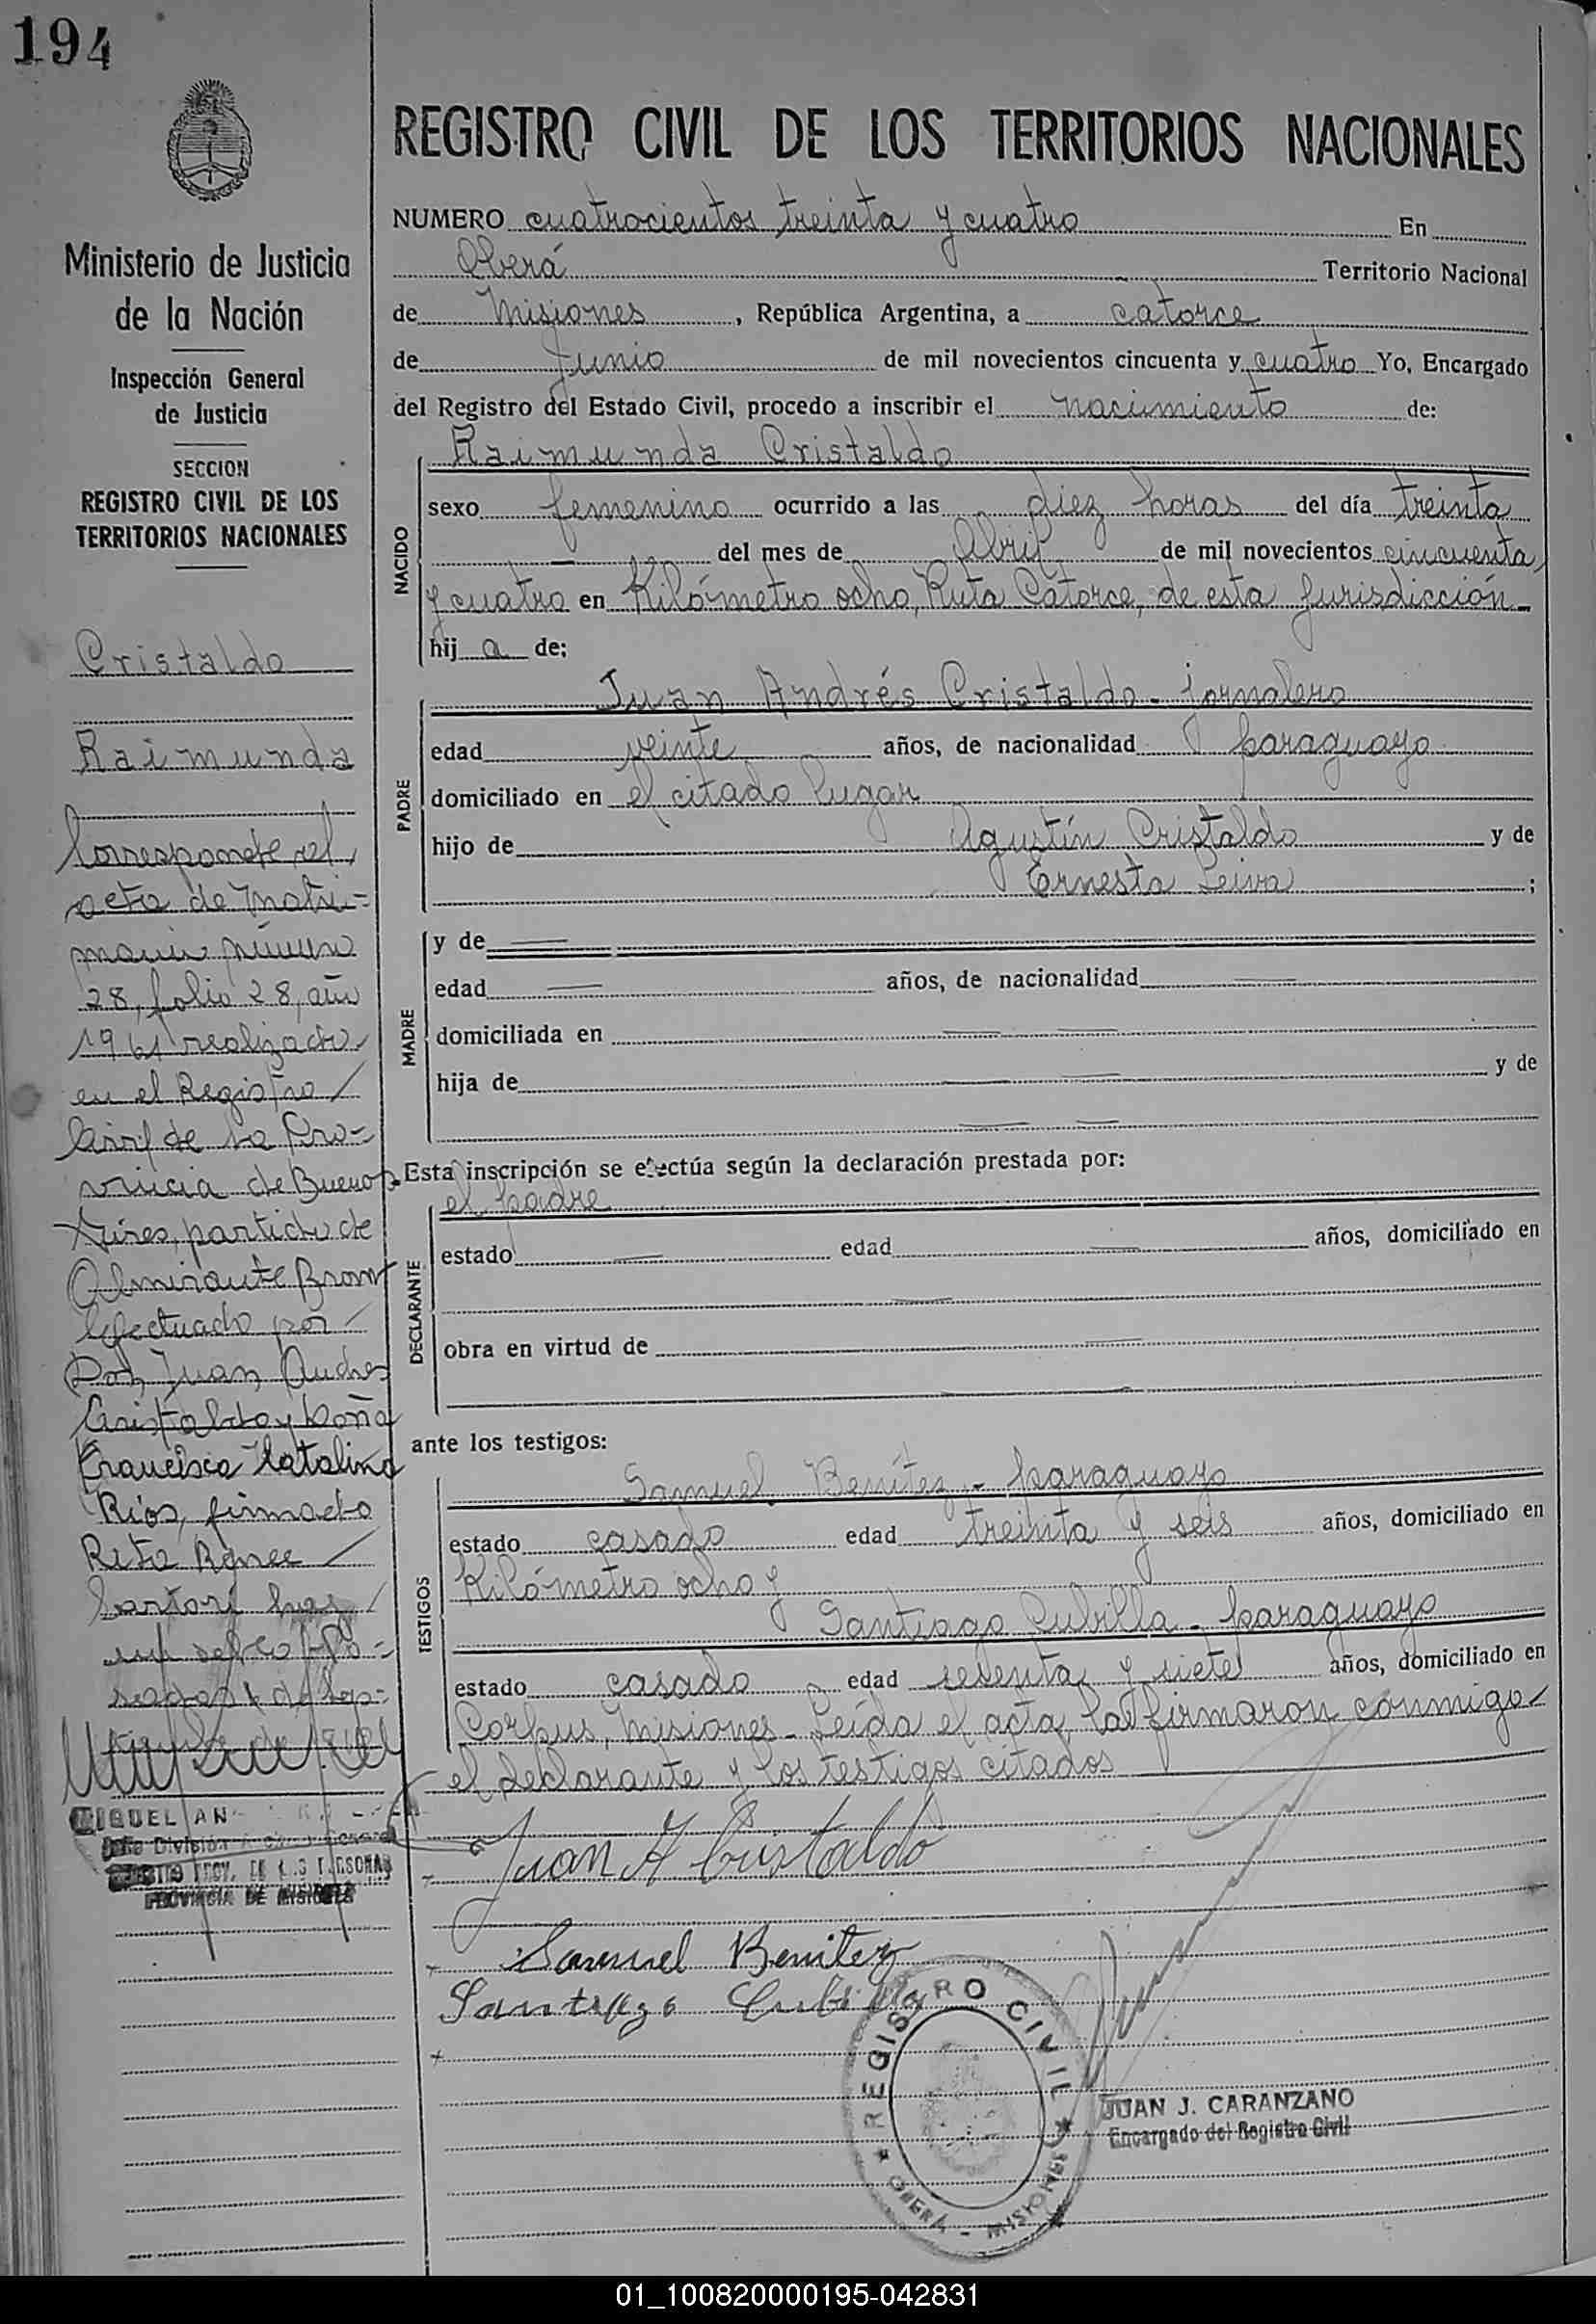 194
Ministerio de Justicia
de la Nación
Inspección General
de Justicia
SECCION
REGISTRO CIVIL DE LOS
TERRITORIOS NACIONALES
Cristaldo
Raimunda
Corresponde el
acta de Matri=
monio número
28, folio 28, año
1961 realizado
en el Registro /
Civil de la Pro-
vincia de Buenos
Aires, partido de
Almirante Brown
Efectuado por
Don Juan Andres
Cristaldo y Doña
Francisca Catalina
Rios, firmado
Rita Renee
Sartori hay
un sello
REGISTRO CIVIL DE LOS TERRITORIOS NACIONALES
NUMERO cuatrocientos treinta y cuatro En
Oberá Territorio Nacional
de Misiones, República Argentina, a catorce
de Junio de mil novecientos cincuenta y cuatro Yo, Encargado
del Registro del Estado Civil, procedo a inscribir el nacimiento de:
Raimunda Cristaldo
NACIDO
sexo femenino ocurrido a las diez horas del día treinta
— del mes de Abril de mil novecientos cincuenta
y cuatro en Kilómetro ocho, Ruta Catorce, de esta Jurisdicción
hij a de:
PADRE
Juan Andrés Cristaldo - jornalero
edad veinte años, de nacionalidad paraguayo
domiciliado en el citado lugar
hijo de Agustín Cristaldo y de
Ernesta Leiva ;
MADRE
y de —
edad — años, de nacionalidad —
domiciliada en — —
hija de — — y de
— —
Esta inscripción se efectúa según la declaración prestada por:
DECLARANTE
el padre
estado — edad — años, domiciliado en
—
obra en virtud de —
—
ante los testigos:
TESTIGOS
Samuel Benítez - paraguayo
estado casado edad treinta y seis años, domiciliado en
Kilómetro ocho y
Santiago Cubilla - paraguayo
estado casado edad sesenta y siete años, domiciliado en
Corpus, Misiones - Leída el acta, la firmaron conmigo
el declarante y los testigos citados
Juan A Cristaldo
Samuel Benitez
Santiago Cubilla
REGISTRO CIVIL
OBERÁ - MISIONES
JUAN J. CARANZANO
Encargado del Registro Civil
MIGUEL AN
PROVINCIA DE MISIONES
01_100820000195-042831